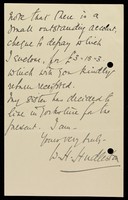 note that there is a
small outstanding account,
cheque to defray which
I enclose, for £3-10-3.
which with you kindly
return receipted.
My sister has decided to
live in Yorkshire for the
present. I am -
Yours very truly.
B. H. Anderson